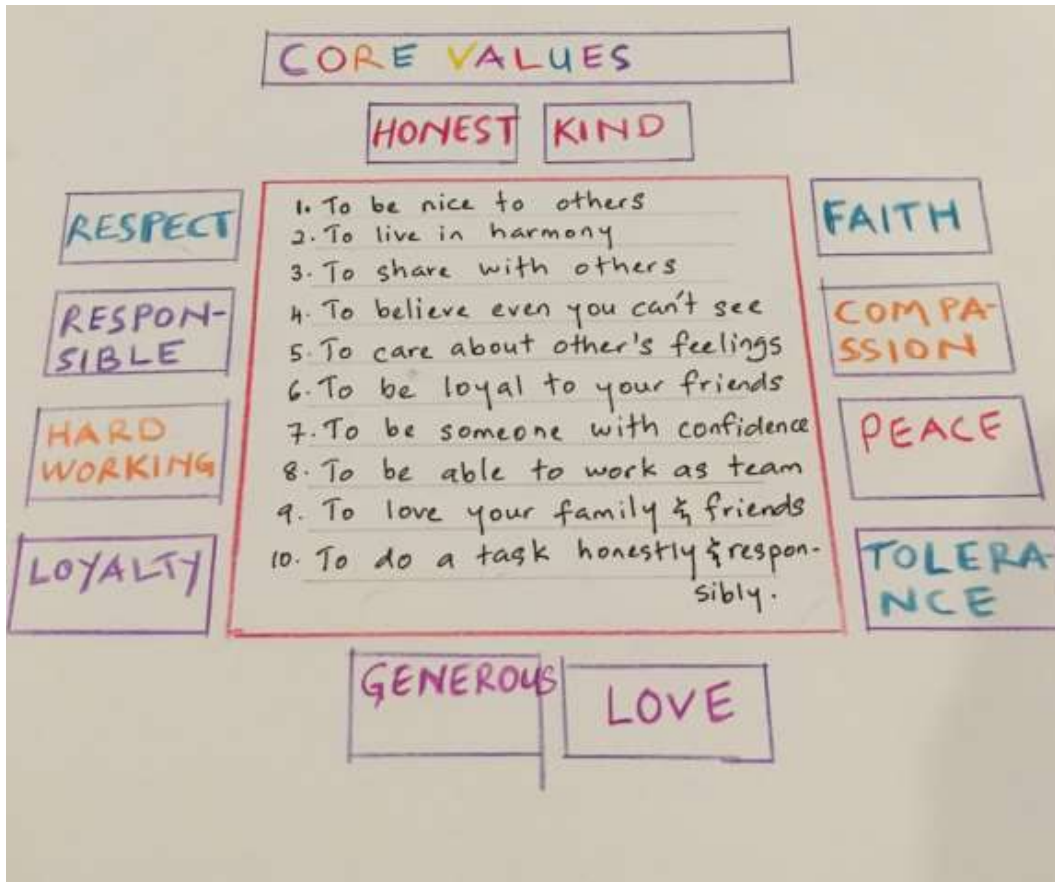 CORE VALUES
HONEST
KIND
RESPECT
RESPON-
SIBLE
HARD
WORKING
LOYALTY
1. To be nice to others
2. To live in harmony
3. To share with others
4. To believe even you can't see
5. To care about other's feelings
6. To be loyal to your friends
7. To be someone with confidence
8. To be able to work as team
9. To love your family & friends
10. To do a task honestly & respon-
sibly.
FAITH
COMPA-
SSION
PEACE
TOLERA-
NCE
GENEROUS
LOVE